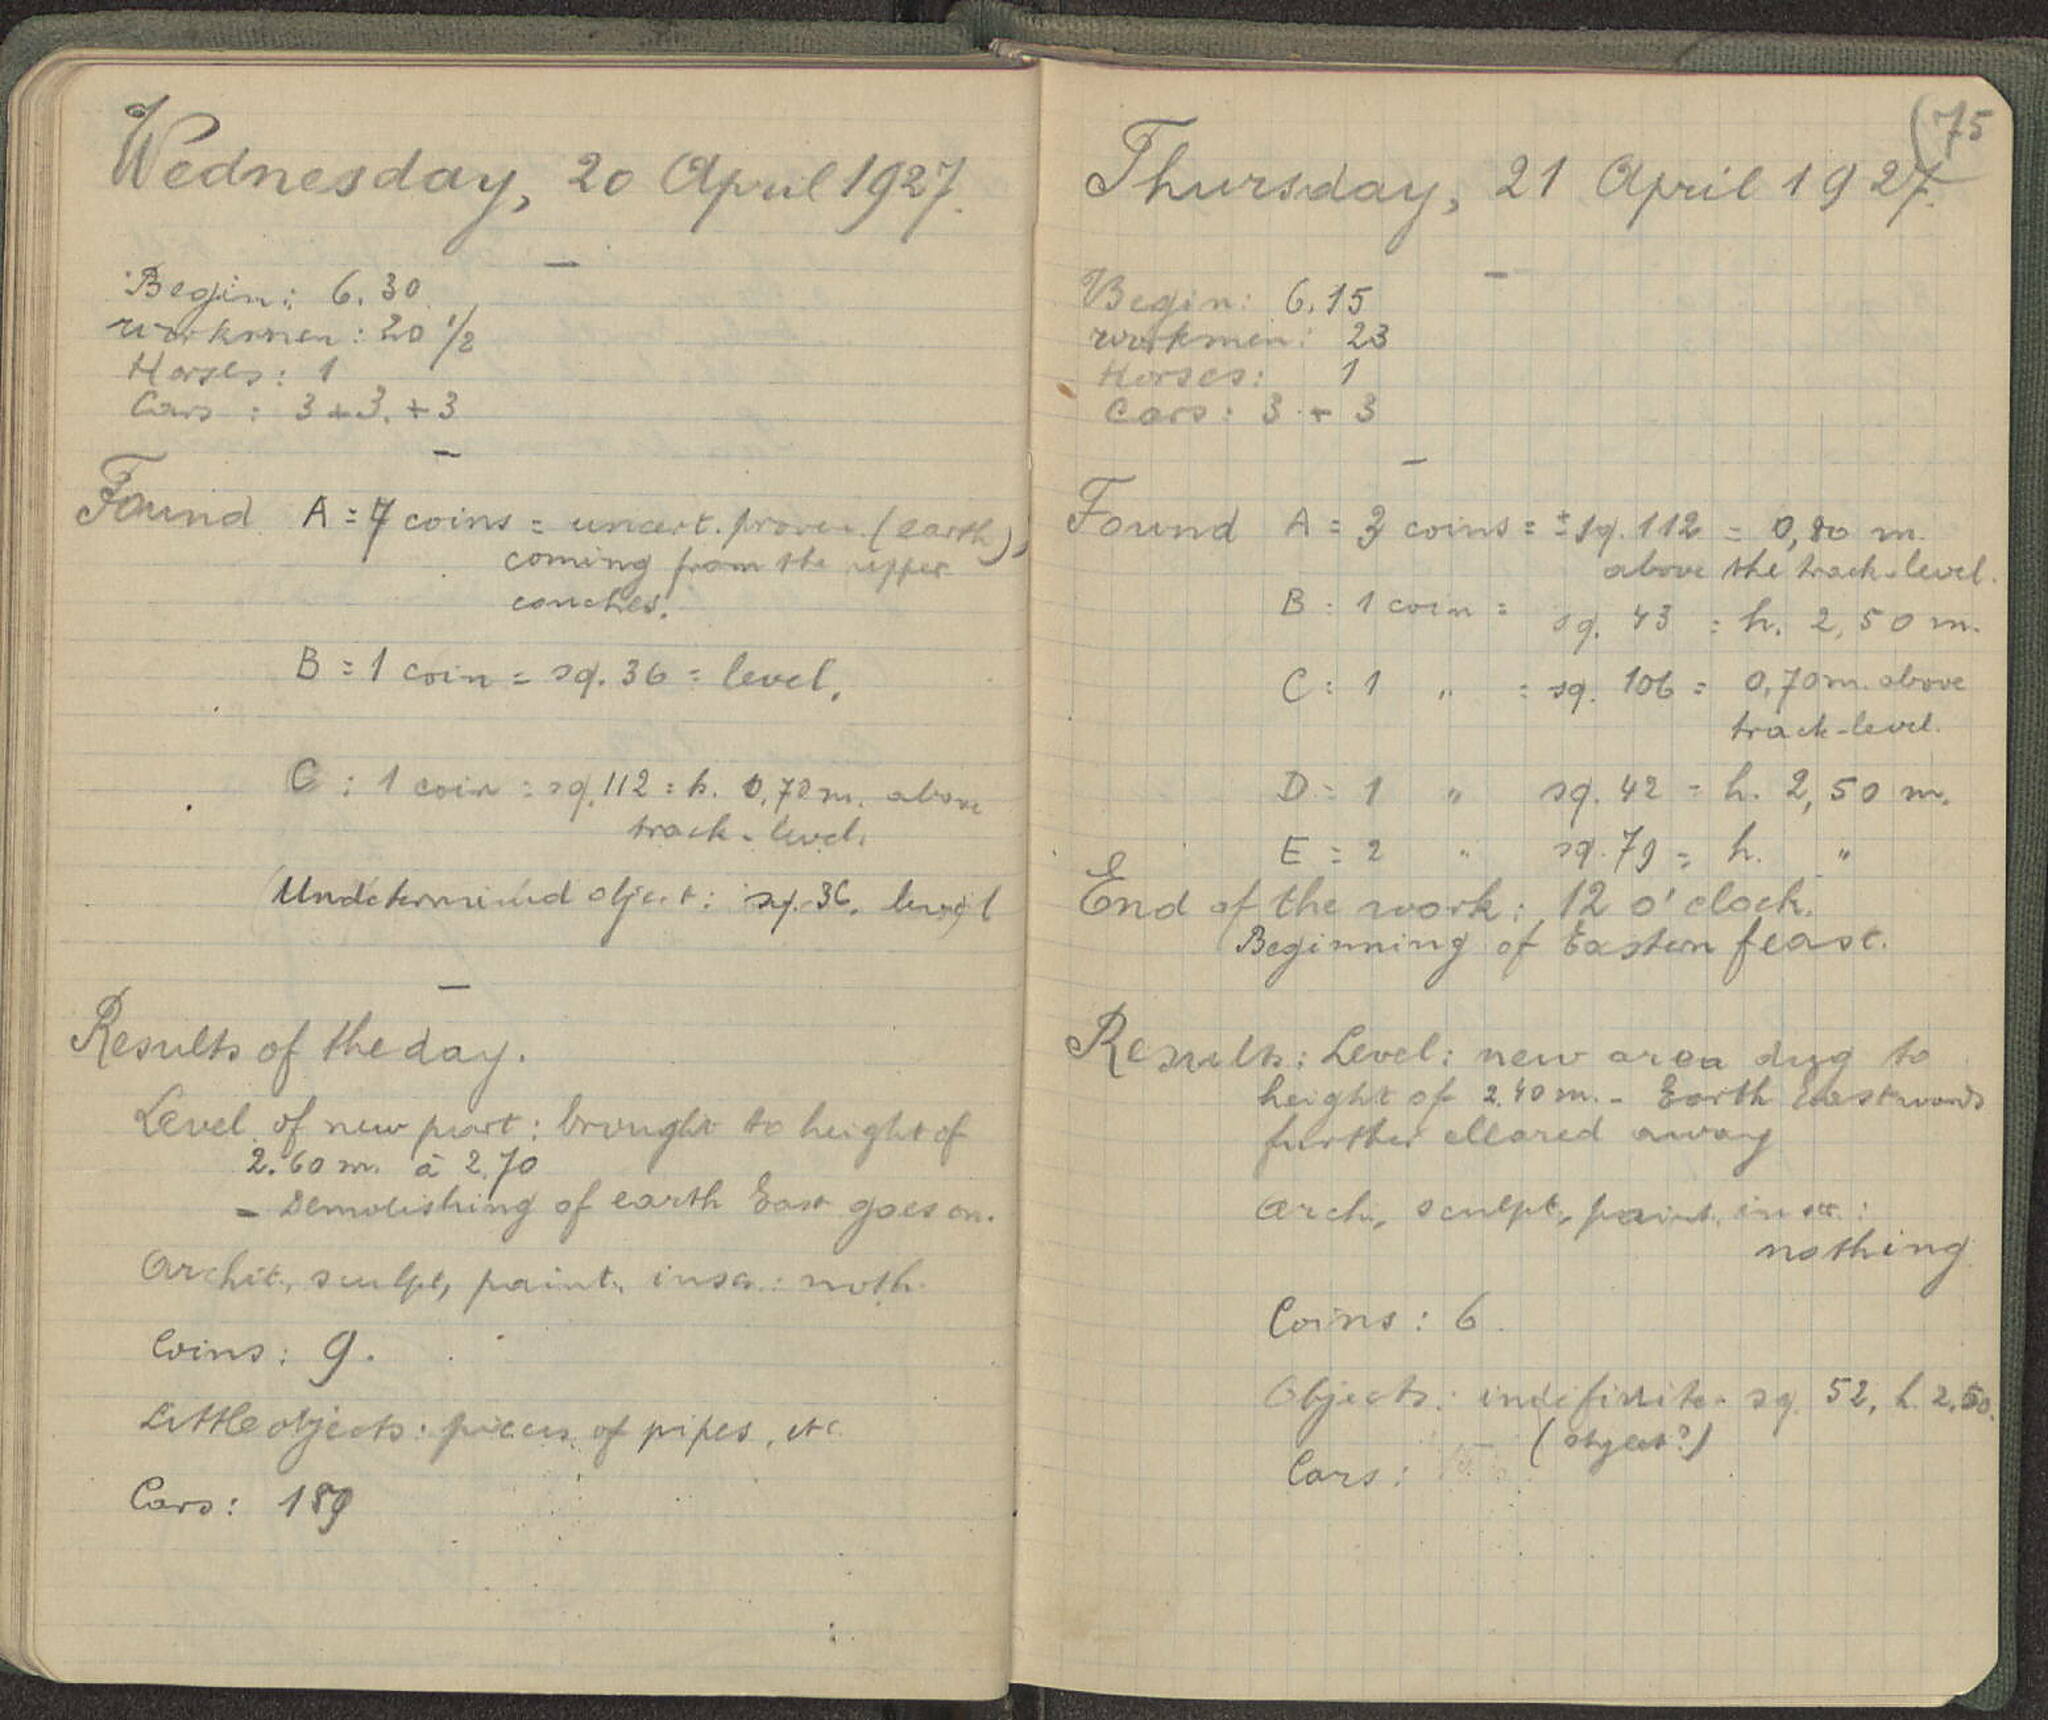 Wednesday, 20 April 1927.
Begin: 6.30
workmen: 20 1/2
Horses: 1
Cars: 3 + 3. + 3
Found A = 7 coins = uncert. proven. (earth),
coming from the upper
couches.
B = 1 coin = sq. 36 = level.
C: 1 coin = sq. 112 = h. 0,70 m. above
track-level.
Undetermined object: sq. 36. level
Results of the day.
Level of new part: brought to height of
2.60 m. à 2.70
- Demolishing of earth East goes on.
Archit., sculpt, paint., inscr.: noth.
Coins: 9.
Little objects: pieces of pipes, etc.
Cars: 189
(75
Thursday, 21 April 1927.
Begin: 6.15
workmen: 23
Horses: 1
Cars: 3 + 3
Found A = 3 coins = ± sq. 112 = 0,80 m.
above the track-level.
B: 1 coin = sq. 43 = h. 2,50 m.
C: 1 " = sq. 106 = 0,70 m. above
track-level.
D = 1 " sq. 42 = h. 2,50 m.
E = 2 " sq. 79 = h. "
End of the work: 12 o'clock.
Beginning of Eastern feast.
Results: Level: new area dug to
height of 2.40 m. - Earth Eastwards
further cleared away
Arch., sculpt., paint. inscr.:
nothing
Coins: 6.
Objects: indefinite. sq. 52, h. 2.50.
(object?)
Cars: